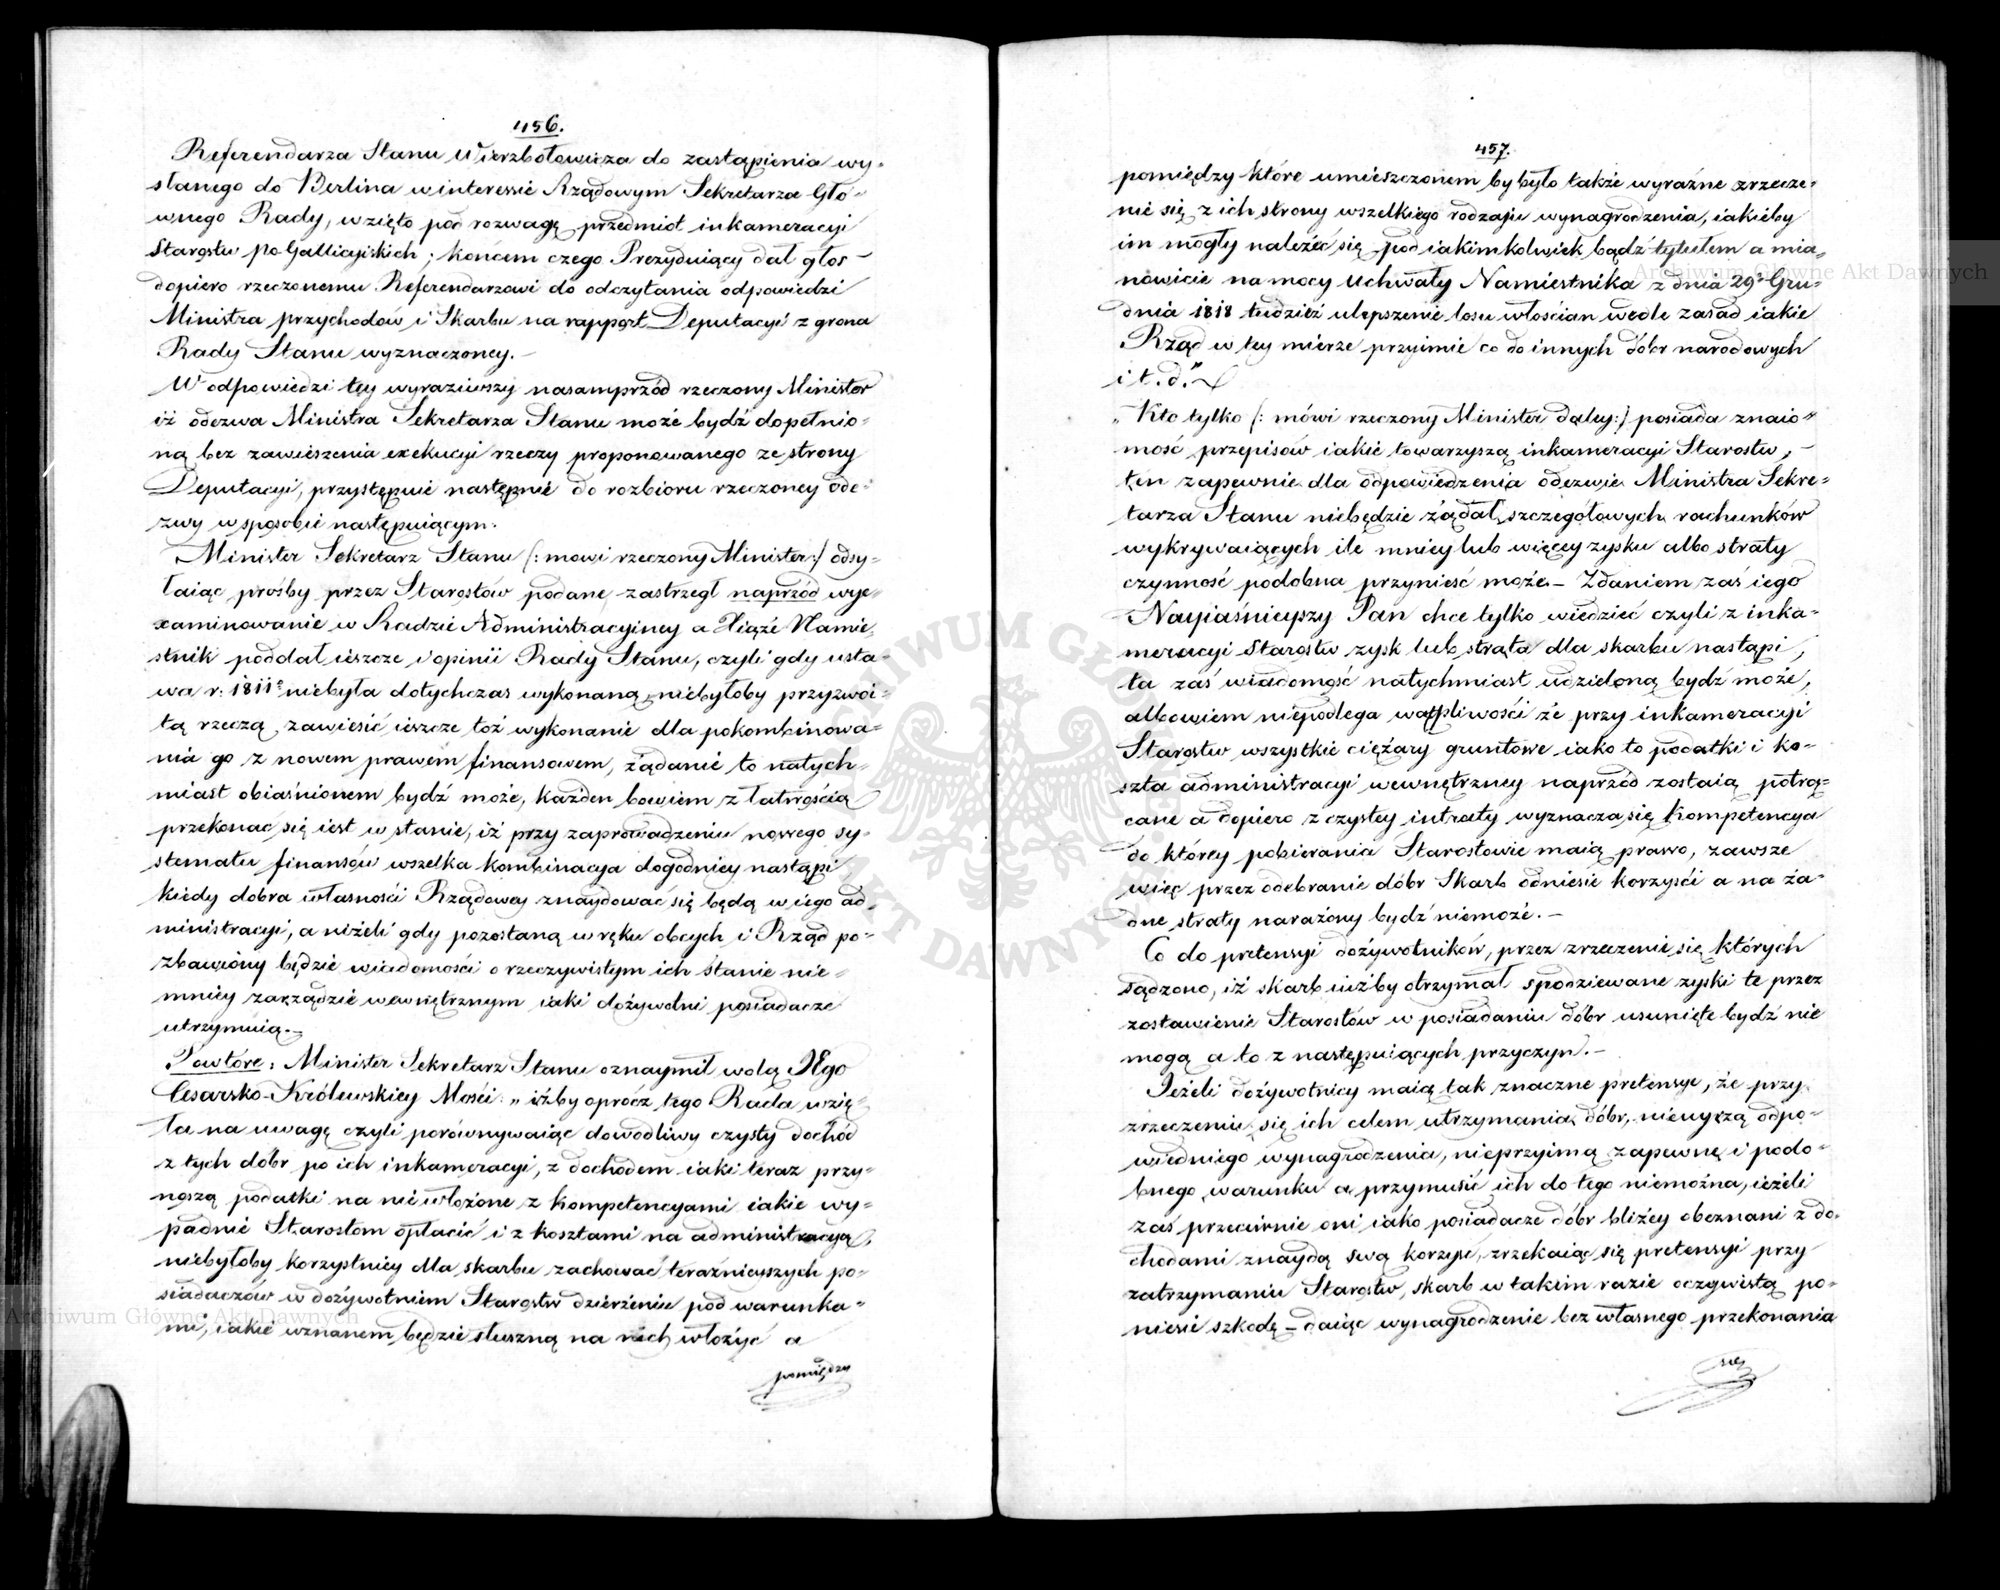 456.
Referendarza Stanu Wierzbołowicza do zastąpienia wy-
słanego do Berlina w interessie Rządowym Sekretarza Głó-
wnego Rady, wzięto pod rozwagę przedmiot inkameracyi
Starostw po Gallicyiskich; końcem czego Prezyduiący dał głos
dopiero rzeczonemu Referendarzowi do odczytania odpowiedzi
Ministra przychodów i Skarbu na rapport Deputacyi z grona
Rady Stanu wyznaczoney.—
W odpowiedzi tey wyraziwszy nasamprzód rzeczony Minister
iż odezwa Ministra Sekretarza Stanu może bydź dopełnio-
ną bez zawieszenia exekucyi rzeczy proponowanego ze strony
Deputacyi, przystępuie następnie do rozbioru rzeczoney ode-
zwy w sposobie następuiącym.
Minister Sekretarz Stanu (: mówi rzeczony Minister:) odsy-
łaiąc prośby przez Starostów podane zastrzegł naprzód wye-
xaminowanie w Radzie Administracyiney a Xiąże Namie-
stnik poddał ieszcze i opinii Rady Stanu, czyli gdy usta-
wa r: 1811o niebyła dotychczas wykonaną, niebyłoby przyzwoi-
tą rzeczą, zawiesić ieszcze toż wykonanie dla pokombinowa-
nia go z nowem prawem finansowem, żądanie to natych-
miast obiaśnionem bydź może, każden bowiem z łatwością
przekonać się iest w stanie, iż przy zaprowadzeniu nowego sy-
stematu finansów wszelka kombinacya dogodniey nastąpi
kiedy dobra własności Rządowey znaydować się będą w iego ad-
ministracyi, a niżeli gdy pozostaną w ręku obcych i Rząd po-
zbawiony będzie wiadomości o rzeczywistym ich stanie nie-
mniey zarządzie wewnętrznym iaki dożywotni posiadacze
utrzymuią.—
Powtóre: Minister Sekretarz Stanu oznaymił wolą JEgo
Cesarsko-Królewskiey Mości: „iżby oprócz tego Rada wzię-
ła na uwagę czyli porównywaiąc dowodliwy czysty dochód
z tych dóbr po ich inkameracyi, z dochodem iaki teraz przy-
noszą podatki na nie włożone z kompetencyami iakie wy-
padnie Starostom opłacić i z kosztami na administracyą,
niebyłoby korzystniey dla skarbu zachować teraźnieyszych po-
siadaczów w dożywotniem Starostw dzierżeniu pod warunka-
mi, iakie uznanem będzie słuszną na nich włożyć a
pomiędzy
457.
pomiędzy które umieszczonem by było także wyraźne zrzecze-
nie się z ich strony wszelkiego rodzaju wynagrodzenia, iakieby
im mogły należeć się pod iakimkolwiek bądź tytułem a mia-
nowicie na mocy Uchwały Namiestnika z dnia 29o Gru-
dnia 1818 tudzież ulepszenie losu włościan wedle zasad iakie
Rząd w tey mierze przyimie co do innych dóbr narodowych
i t. d."
„Kto tylko (: mówi rzeczony Minister daley:) posiada znaio-
mość przepisów iakie towarzyszą inkameracyi Starostw,—
ten zapewnie dla odpowiedzenia odezwie Ministra Sekre-
tarza Stanu niebędzie żądał szczegółowych rachunków
wykrywaiących ile mniey lub więcey zysku albo straty
czynność podobna przynieść może.— Zdaniem zaś iego
Nayiaśnieyszy Pan chce tylko wiedzieć czyli z inka-
meracyi Starostw zysk lub strata dla skarbu nastąpi,
ta zaś wiadomość natychmiast udzieloną bydź może,
albowiem niepodlega wątpliwości że przy inkameracyi
Starostw wszystkie ciężary gruntowe iako to podatki i ko-
szta administracyi wewnętrzney naprzód zostaią potrą-
cane a dopiero z czystey intraty wyznacza się kompetencya
do którey pobierania Starostowie maią prawo, zawsze
więc przez odebranie dóbr Skarb odniesie korzyści a na ża-
dne straty narażony bydź niemoże.—
Co do pretensyi dożywotników, przez zrzeczenie się których
sądzono, iż skarb iużby otrzymał spodziewane zyski te przez
zostawienie Starostów w posiadaniu dóbr usunięte bydź nie
mogą a to z następuiących przyczyn.—
Jeżeli dożywotnicy maią tak znaczne pretensye, że przy
zrzeczeniu się ich celem utrzymania dóbr, nieuyrzą odpo-
wiedniego wynagrodzenia, nieprzyimą zapewne i podo-
bnego warunku a przymusić ich do tego niemożna, ieżeli
zaś przeciwnie oni iako posiadacze dóbr bliżey obeznani z do-
chodami znaydą swą korzyść, zrzekaiąc się pretensyi przy
zatrzymaniu Starostw, skarb w takim razie oczywistą po-
niesie szkodę — daiąc wynagrodzenie bez własnego przekonania
się
Archiwum Główne Akt Dawnych
Archiwum Główne Akt Dawnych
ARCHIWUM GŁÓWNE AKT DAWNYCH